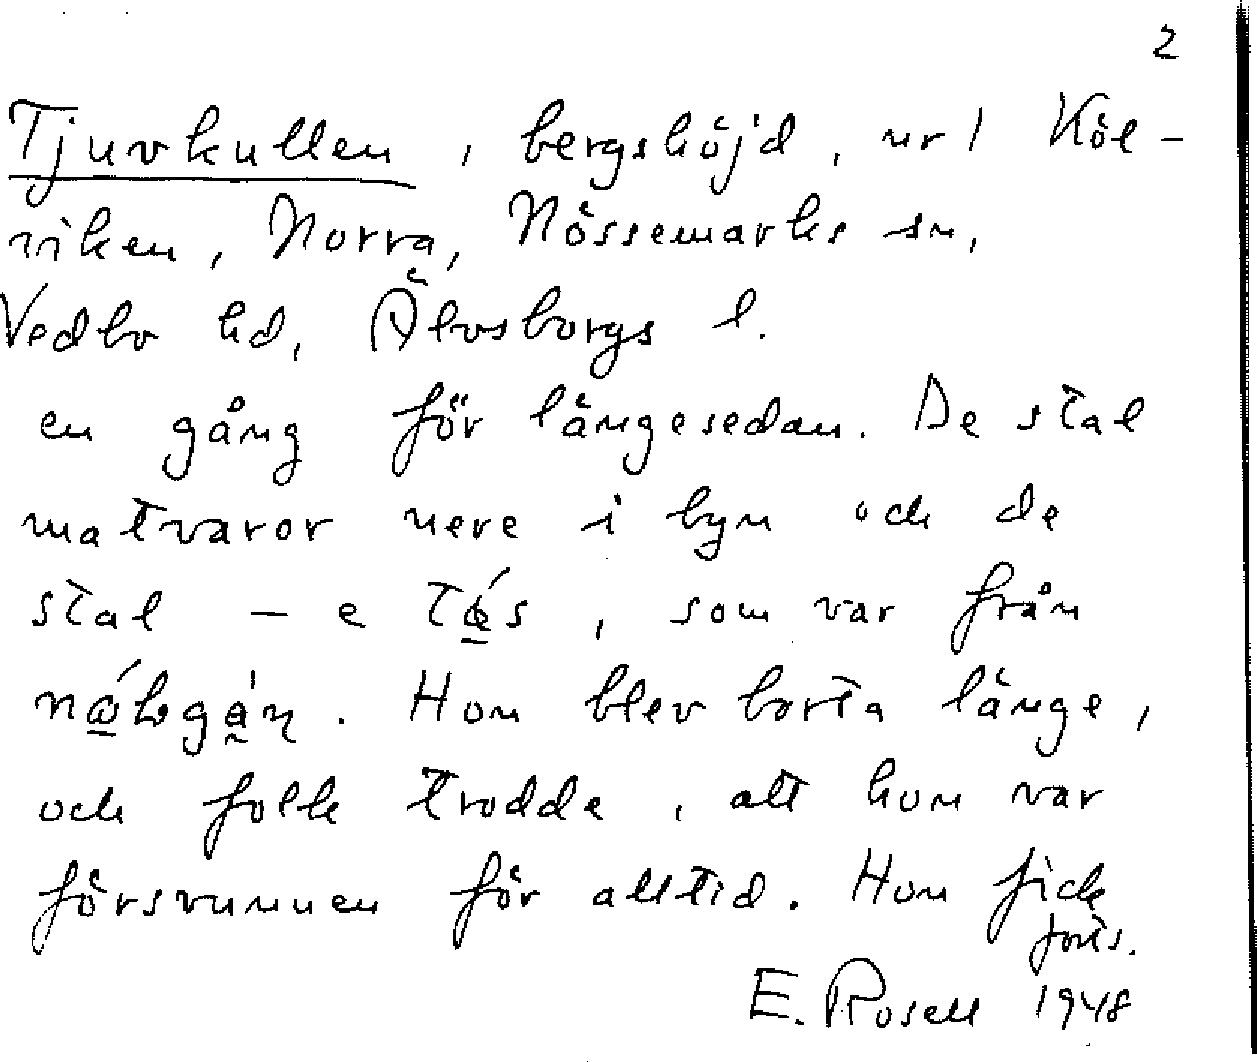 2
Tjuvkullen, bergshöjd, ur 1 Köl-
viken, Norra, Nössemarks sn,
Vedbo hd, Älvsborgs l.
en gång för längesedan. De stal
matvaror nere i byn och de
stal – e tǿs, som var från
Hon blev borta länge,
och folk trodde, att hon var
försvunnen för alltid. Hon fick
forts.
E. Rosell 1948